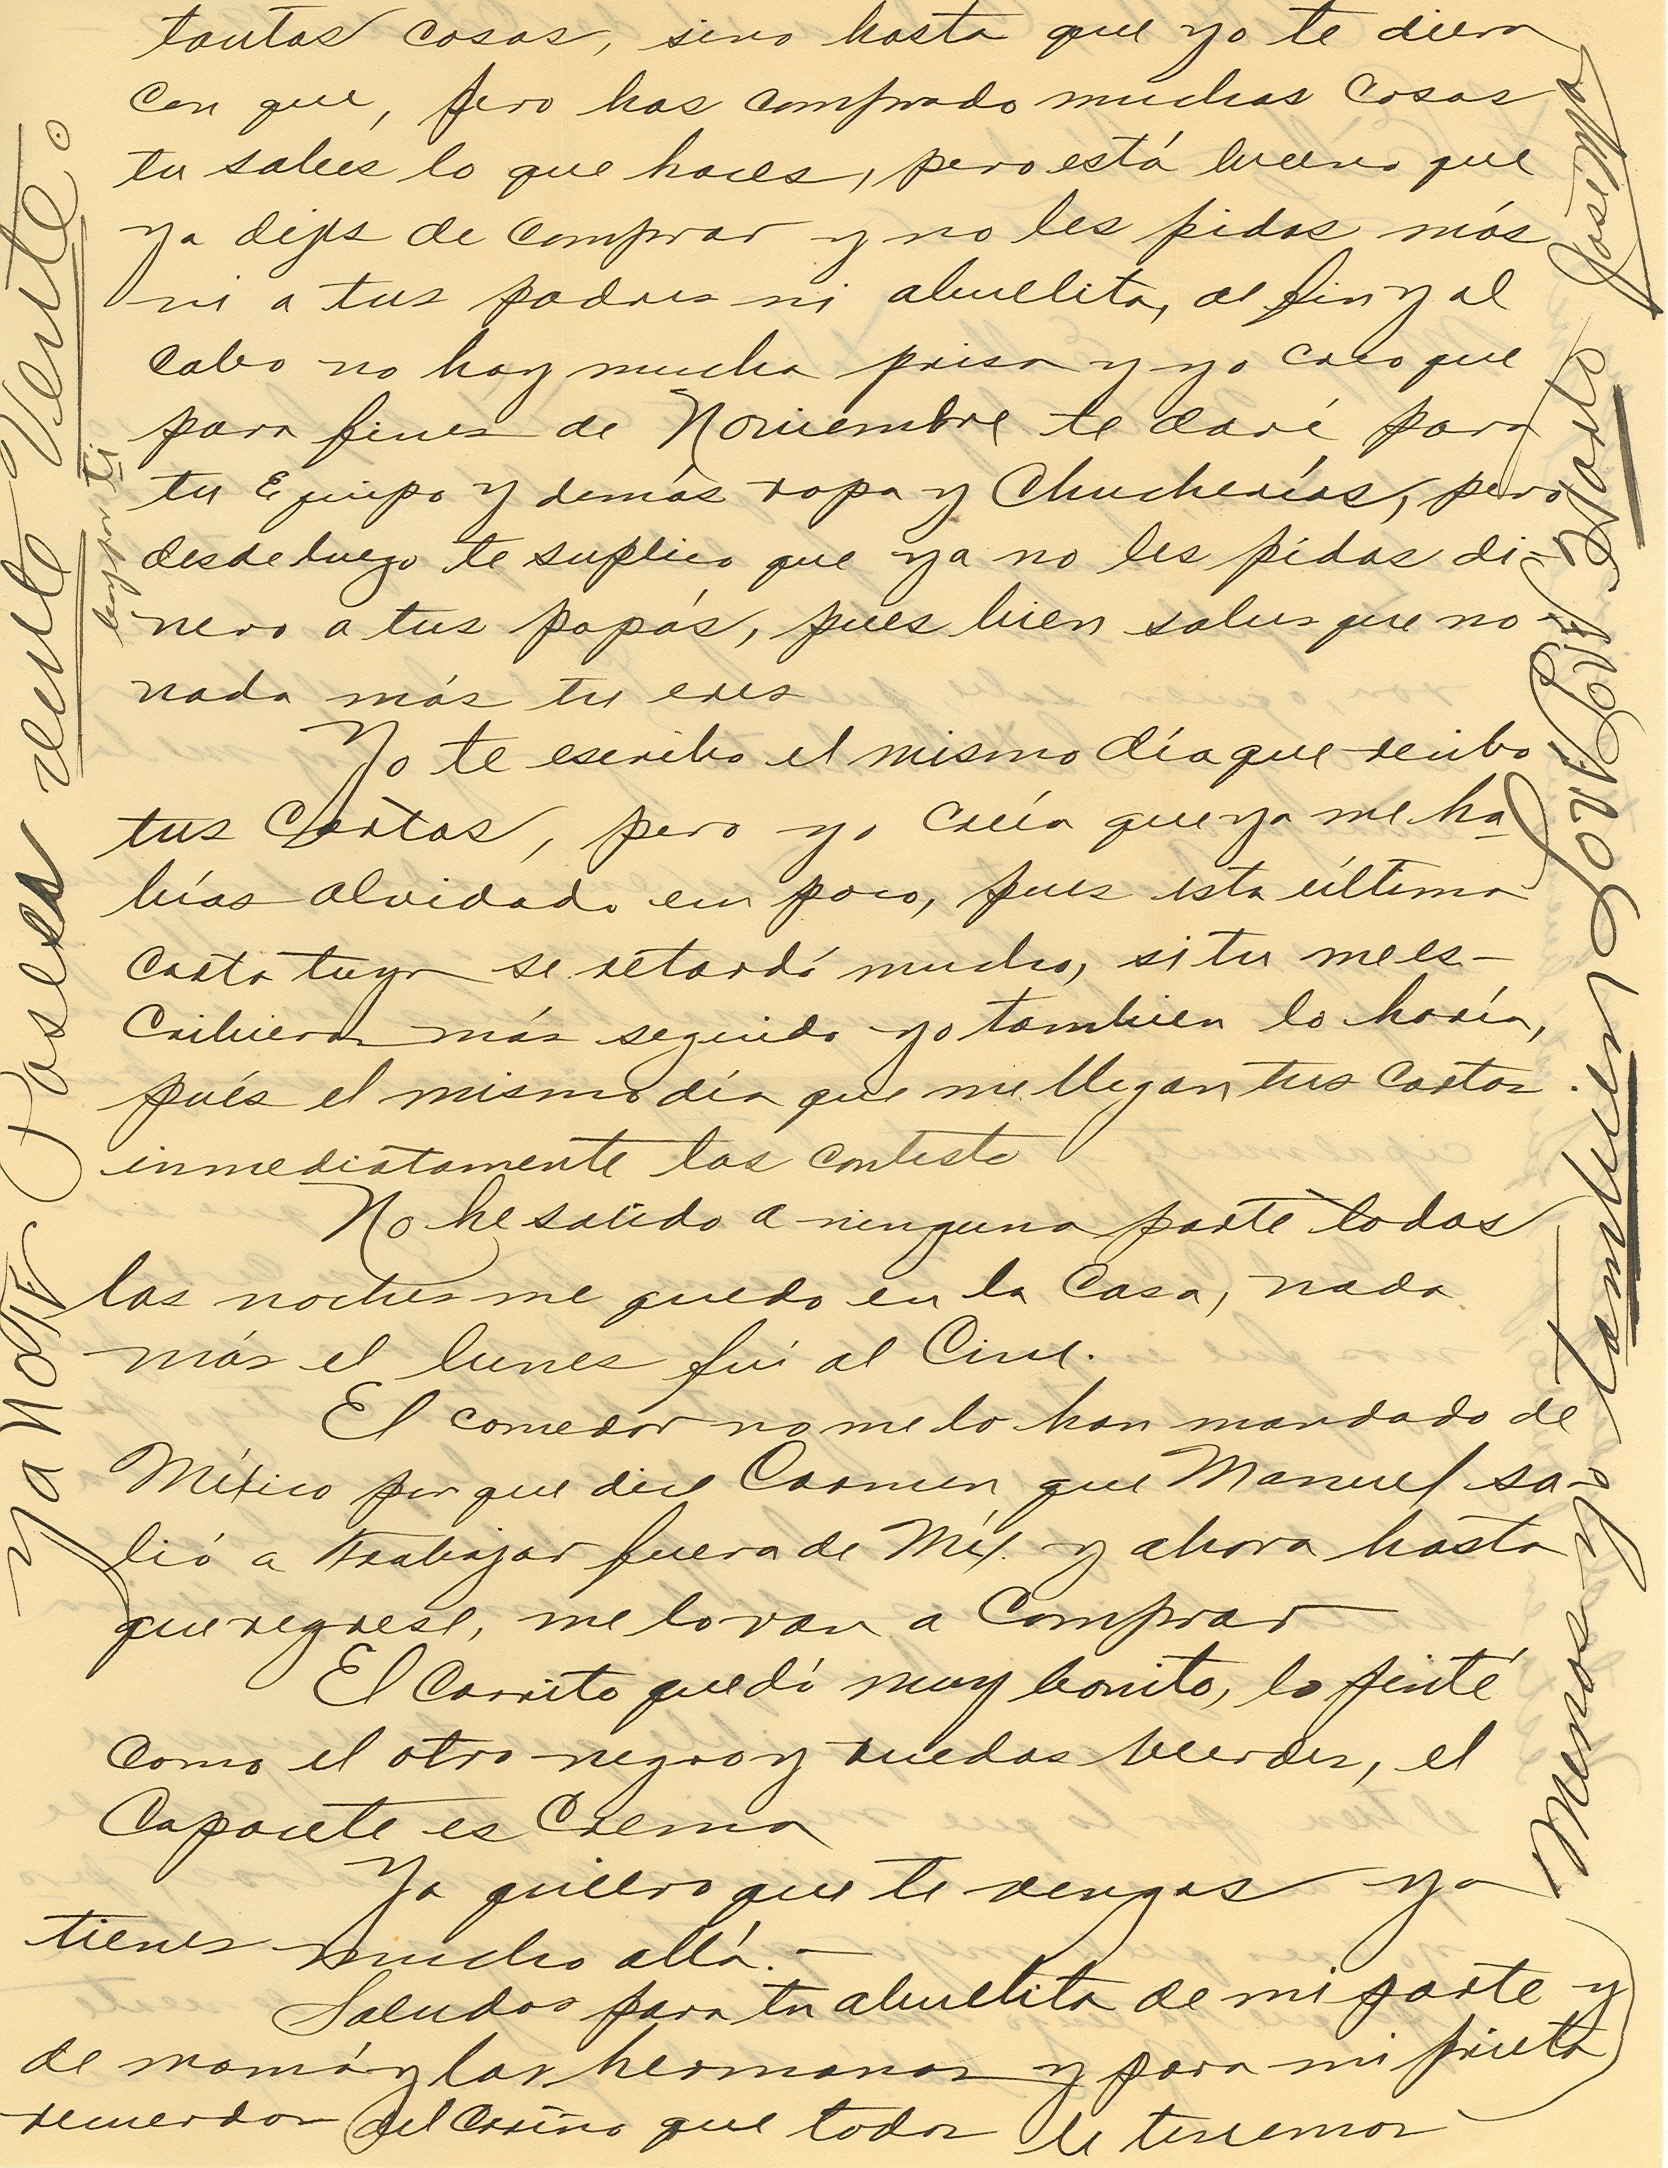 tantas cosas, sino hasta que yo te diera
con que, pero has comprado muchas cosas
tu sabes lo que haces, pero está bueno que
ya dejes de comprar y no les pidas más
ni a tus padres ni abuelita, al fin y al
cabo no hay mucha prisa y yo creo que
para fines de Noviembre te daré para
tu Equipo y demás ropa y Chucherías, pero
desde luego te suplico que ya no les pidas di-
nero a tus papás, pues bien sabes que no
nada más tu eres
Yo te escribo el mismo día que recibo
tus Cartas, pero yo creía que ya me ha
bías olvidado un poco, pues esta última
carta tuya se retardó mucho, si tu me es-
cribieras más seguido yo tambien lo haría,
pués el mismo día que me llegan tus cartas
inmediatamente las contesto
No he salido a ninguna parte todas
las noches me quedo en la casa, nada
más el lunes fuí al Cine.
El comedor no me lo han mandado de
México porque dice Carmen que Manuel sa-
lió a trabajar fuera de Méx. y ahora hasta
que regrese, me lo van a Comprar
El Carrito quedó muy bonito, lo pinté
como el otro negro y ruedas verdes, el
Capacete es Crema
Ya quiero que te vengas ya
tienes mucho allá.-
Saludos para tu abuelita de mi parte y
de mamá y las hermanas y para mi prieta
recuerdos del Cariño que todos le tenemos
Menos yo tambien
José Ma
ya NOTE Pasees vente Vente.
hay por ti